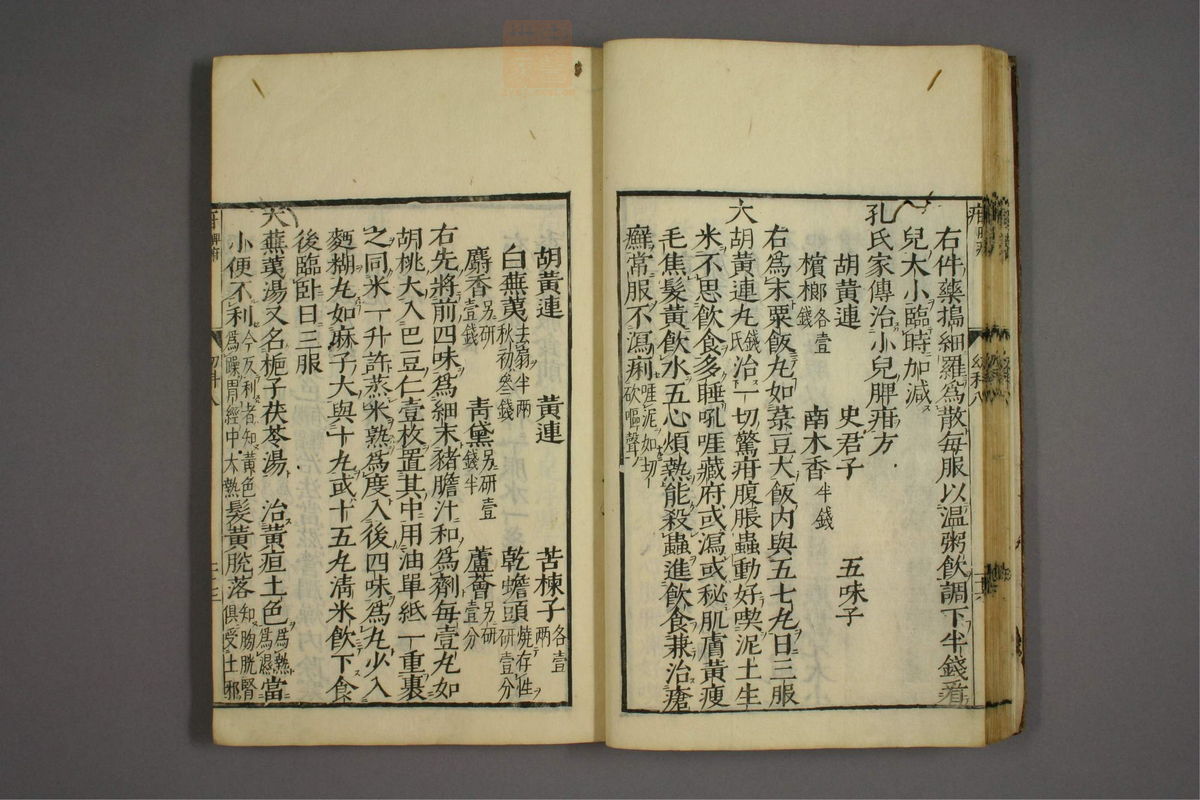 右件藥搗細羅爲散每服以温粥飲調下半錢看
兒大小臨時加減
孔氏家傳治小兒脾疳方
胡黃連 史君子 五味子
檳榔各壹錢 南木香半錢
右爲末粟飯丸如菉豆大飯内與五七丸日三服
大胡黃連丸錢氏治一切驚疳腹脹蟲動好喫泥土生
米不思飲食多睡吼啀藏府或瀉或秘肌膚黃瘦
毛焦髮黃飲水五心煩熱能殺蟲進飲食兼治瘡
癬常服不瀉痢啀泥如切砍嘔聲
胡黃連 黃連 苦楝子各壹兩
白蕪荑去扇半兩秋初叁錢 乾蟾頭燒存性研壹分
麝香另研壹錢 青黛另研壹錢半 蘆薈另研壹分
右先將前四味爲細末豬膽汁和爲劑每壹丸如
胡桃大入巴豆仁壹枚置其中用油單紙一重裹
之同米一升許蒸米熟爲度入後四味爲丸少入
麪糊丸如麻子大與十丸或十五丸清米飲下食
後臨卧日三服
大蕪荑湯又名梔子茯苓湯 治黃疸土色爲熱爲濕當
小便不利今反利者知黃色爲躁胃經中大熱髮黃脫落知胸胱腎俱受土邪